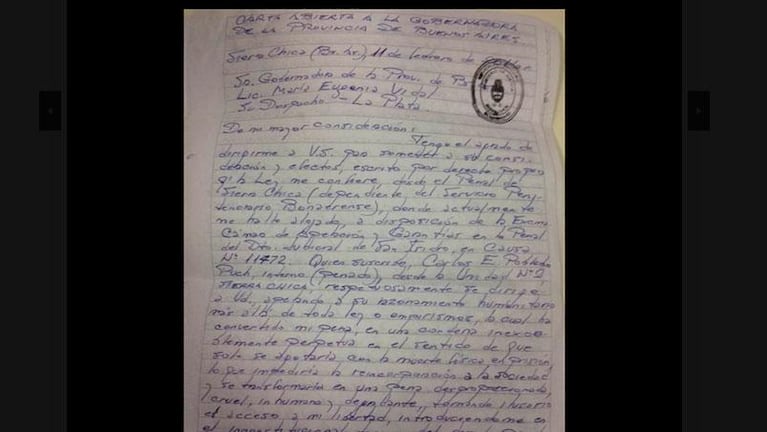 CARTA ABIERTA A LA GOBERNADORA
DE LA PROVINCIA DE BUENOS AIRES...
Sierra Chica (Bs. As.), 11 de febrero de
Sra. Gobernadora de la Prov. de Bs
Lic. María Eugenia Vidal
Su Despacho - La Plata
De mi mayor consideración:
Tengo el agrado de
dirigirme a V.S. para someter a su consi-
deración y efectos, escrito por derecho propio
q' la Ley me confiere, desde el Penal de
Sierra Chica (dependiente del Servicio Peni-
tenciario Bonaerense), donde actualmente
me hallo alojado, a disposición de la Excma
Cámara de Apelación y Garantías en lo Penal
del Dto. Judicial de San Isidro, en Causa
N° 11472. Quien suscribe, Carlos E. Robledo
Puch, interno (penado), desde la Unidad N° 2,
SIERRA CHICA, respetuosamente se dirige
a Ud., apelando a su razonamiento humanitario
más allá de toda ley o empirismos, la cual ha
convertido mi pena, en una condena inexo-
rablemente perpetua en el sentido de que
solo se agotaría con la muerte física en prisión
lo que impediría la reincorporación a la sociedad
y se transformaría en una pena desproporcionada,
cruel, inhumana y degradante, tornando ilusorio
el acceso a mi libertad, introduciéndome en
el